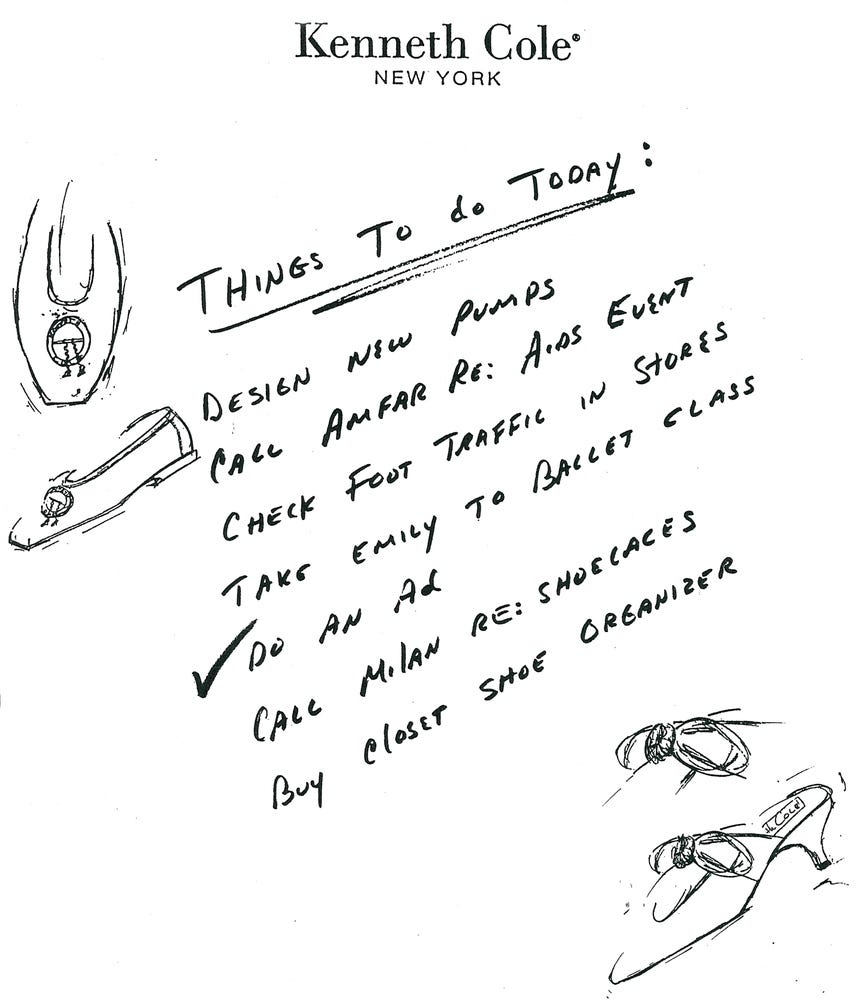 Kenneth Cole®
NEW YORK
THINGS TO do TODAY:
DESIGN NEW PUMPS
CALL AMFAR RE: AIDS EVENT
CHECK FOOT TRAFFIC IN STORES
TAKE EMILY TO BALLET CLASS
✓ DO AN Ad
CALL MIlAN RE: SHOELACES
BUY ClOSET SHOE ORGANIZER
COLE